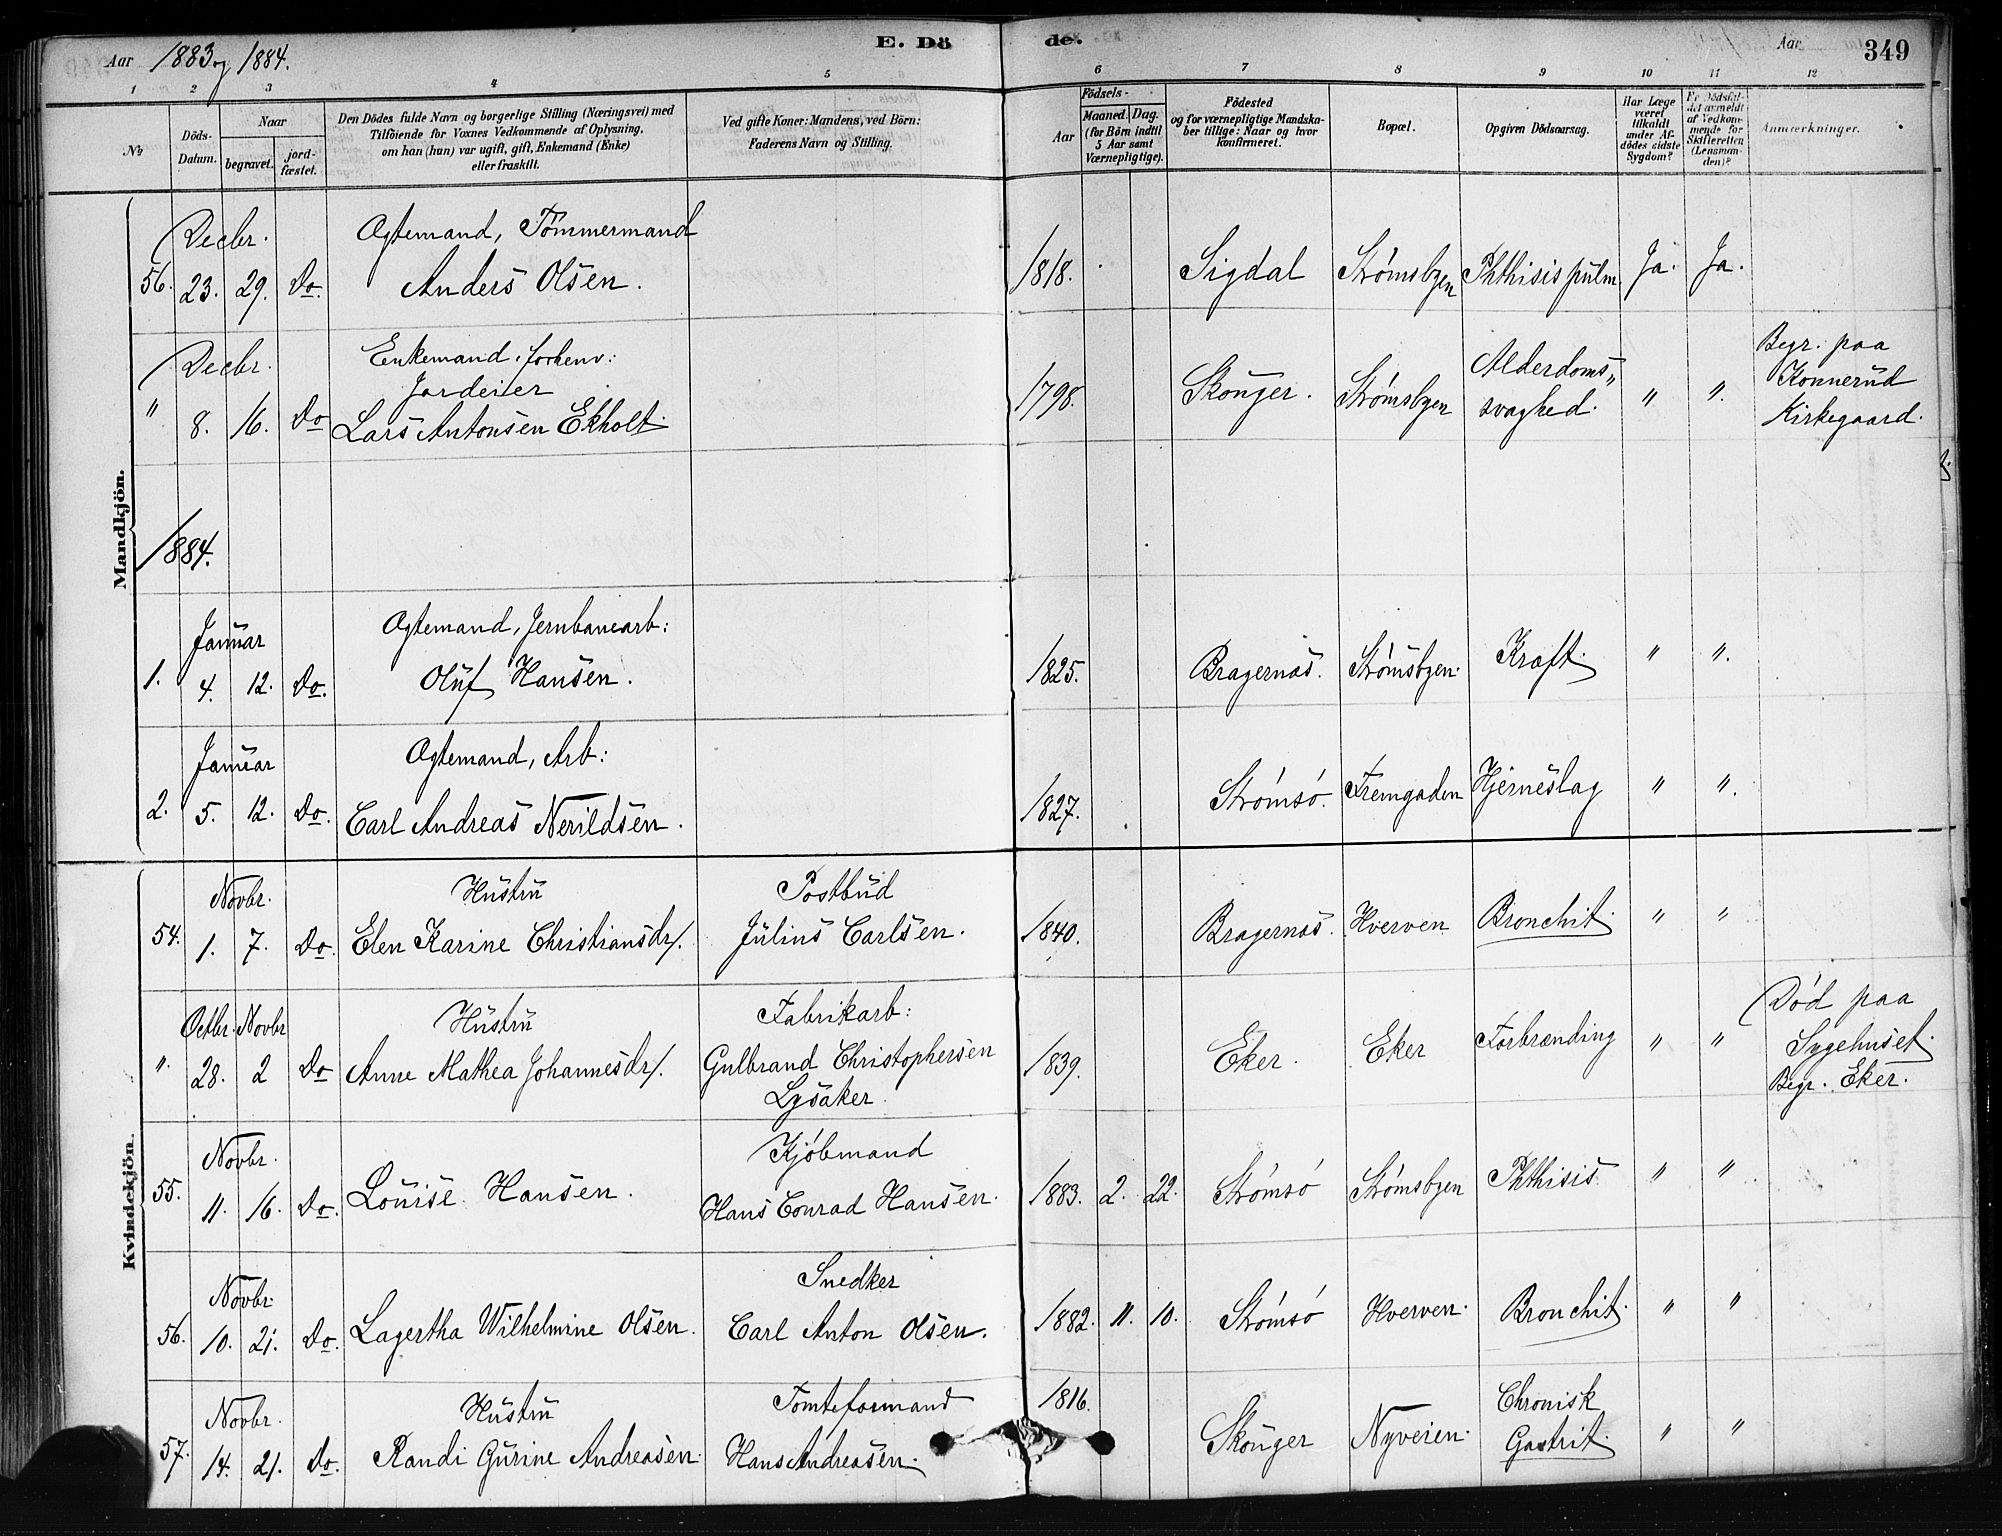 Aar 1883 og 1884.
E. Dö
de.
Aar
349
1 2 3 4 5 6 7 8 9 10 11 12
No
Döds-
Datum.
Naar
begravet.
jord-
fæstet.
Den Dödes fulde Navn og borgerlige Stilling (Næringsvei) med
Tilföiende for Voxnes Vedkommende af Oplysning,
om han (hun) var ugift, gift, Enkemand (Enke)
eller fraskilt.
Ved gifte Koner: Mandens, ved Börn:
Faderens Navn og Stilling.
Födsels-
Aar
Maaned.
Dag.
(for Börn indtil
5 Aar samt
Værnepligtige).
Födested
og for værnepligtige Mandska-
ber tillige: Naar og hvor
konfirmeret.
Bopæl.
Opgiven Dödsaarsag.
Har Læge
været
tilkaldt
under Af-
dödes sidste
Sygdom?
Er Dödsfal-
det anmeldt
af Vedkom-
mende for
Skifteretten
(Lensman-
den)?
Anmærkninger.
Mandkjön.
Decbr. Ogtemand, Tømmermand
56. 23. 29. Do. Anders Olsen. 1818. Sigdal Strømsbyen Phthisis pulm. Ja. Ja.
Decbr. Enkemand, forhenv:
Jordeier
" 8. 16. Do Lars Antonsen Ekholt 1798. Skouger. Strømsbyen Alderdoms"
svaghed. " ". Begr. paa
Konnerud
Kirkegaard.
1884.
Januar Ogtemand, Jernbanearb:
1. 4. 12. Do. Oluf Hansen. 1825. Bragernæs. Strømsbyen. Kræft. " ".
Januar Ogtemand, Arb:
2. 5. 12. Do. Carl Andreas Nerildsen. 1827. Strømsø. Tremgaden Hjerneslag " ".
Kvindekjön.
Novbr. Hustru Postbud
54. 1. 7. Do. Elen Karine Christiansdr/. Julius Carlsen. 1840. Bragernæs. Hverven Bronchit. " "
Octbr. Novbr Hustru Fabrikarb:
". 28. 2 Do Anne Mathea Johannesdr/. Gulbrand Christophersen
Lysaker. 1839. Eker. Eker Forbrænding " " Død paa
Sygehuset.
Begr. Eker.
Novbr. Kjøbmand
55. 11. 16. Do. Louise Hansen. Hans Conrad Hansen. 1883. 2. 22. Strømsø Strømsbyen Phthisis " "
Novbr. Snedker
56. 10. 21. Do. Lagertha Wilhelmine Olsen. Carl Anton Olsen. 1882. 11. 10. Strømsø Hverven. Bronchit. " "
Novbr. Hustru Tomteformand 1816.
57. 14. 21. Do. Randi Gurine Andreasen. Hans Andreasen. Skouger Nyveien. Chronisk
Gastrit. " "